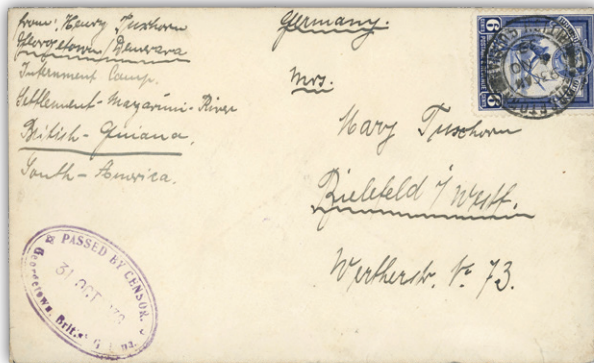 from: Henry Tuxhorn
Georgetown/Demerara
Internment Camp.
Settlement-Mazaruni-River
British-Guiana,
South-America.
Germany.
Mrs.
Mary Tuxhorn
Bielefeld i/Westf.
Wertherstr. No 73.
PASSED BY CENSOR.
31 OCT
Georgetown, Brit.
6 6